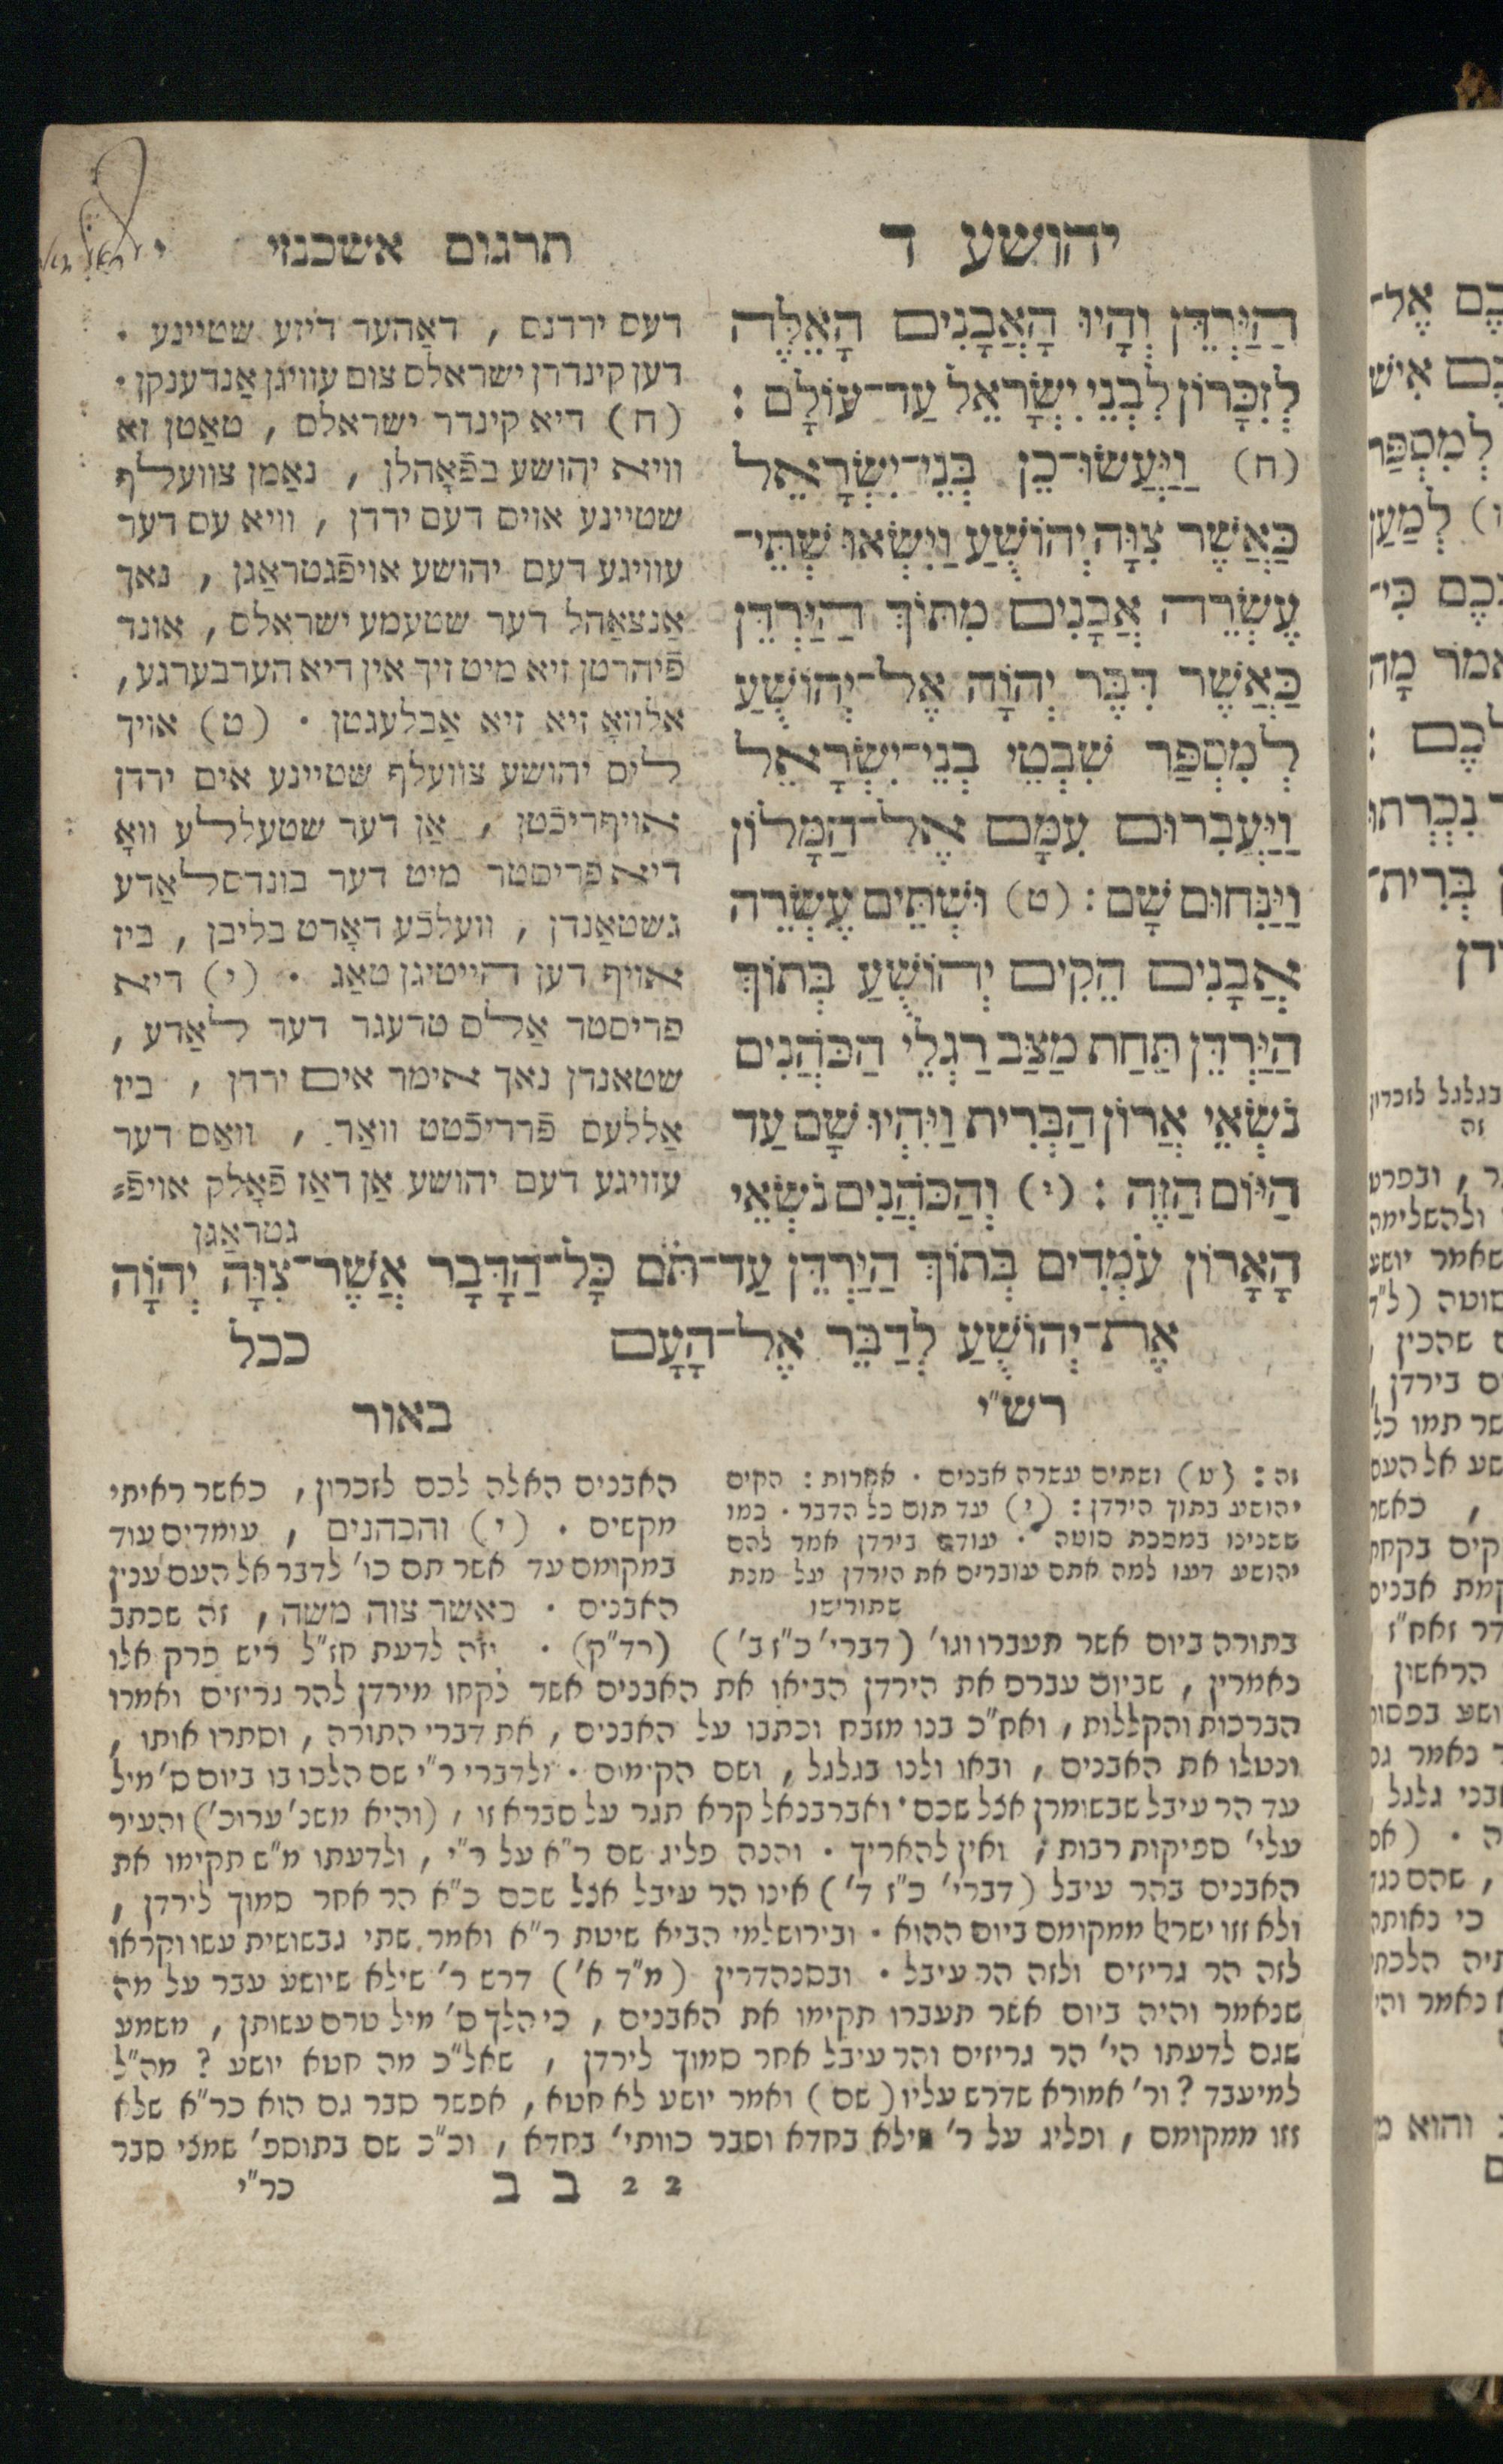 יהושע ד
תרגום אשכנזי
י
הַיַּרְדֵּן וְהָיוּ הָאֲבָנִים הָאֵלֶּה
לְזִכָּרוֹן לִבְנֵי יִשְׂרָאֵל עַד־עוֹלָם :
(ח) וַיַּעֲשׂוּ־כֵן בְּנֵי־יִשְׂרָאֵל
כַּאֲשֶׁר צִוָּה יְהוֹשֻׁעַ וַיִּשְׂאוּ שְׁתֵּי־
עֶשְׂרֵה אֲבָנִים מִתּוֹךְ הַיַּרְדֵּן
כַּאֲשֶׁר דִּבֶּר יְהוָֹה אֶל־יְהוֹשֻׁעַ
לְמִסְפַּר שִׁבְטֵי בְנֵי־יִשְׂרָאֵל
וַיַּעֲבִרוּם עִמָּם אֶל־הַמָּלוֹן
וַיַּנִּחוּם שָׁם : (ט) וּשְׁתֵּים עֶשְׂרֵה
אֲבָנִים הֵקִים יְהוֹשֻׁעַ בְּתוֹךְ
הַיַּרְדֵּן תַּחַת מַצַּב רַגְלֵי הַכֹּהֲנִים
נֹשְׂאֵי אֲרוֹן הַבְּרִית וַיִּהְיוּ שָׁם עַד
הַיּוֹם הַזֶּה : (י) וְהַכֹּהֲנִים נֹשְׂאֵי
דעס ירדנס , דאַהער דיזע שטיינע •
דען קינדרן ישראלס צום עוויגן אַנדענקן •
(ח) דיא קינדר ישראלס , טאַטן זא
וויא יהושע בפֿאָהלן , נאַמן צוועלף
שטיינע אויס דעם ירדן , וויא עס דער
עוויגע דעם יהושע אויפֿגטראַגן , נאך
אַנצאַהל דער שטעמע ישראלס , אונד
פֿיהרטן זיא מיט זיך אין דיא הערבערגע ,
אלוואָ זיא זיא אַבלעגטן • (ט) אויך
ליס יהושע צוועלף שטיינע אים ירדן
אויפריכֿטן , אַן דער שטעללע וואָ
דיא פריסטר מיט דער בונדסלאַדע
גשטאַנדן , וועלכֿע דאָרט בליבן , ביז
אויף דען הייטיגן טאַג • (י) דיא
פריסטר אַלס טרעגר דער לאַדע ,
שטאנדן נאך אימר אים ירדן , ביז
אַללעס פֿרדיכֿטט וואַר , וואַס דער
עוויגע דעם יהושע אַן דאַז פֿאָלק אויפֿ⸗
גטראַגן
הָאָרוֹן עֹמְדִים בְּתוֹךְ הַיַּרְדֵּן עַד־תֹּם כָּל־הַדָּבָר אֲשֶׁר־צִוָּה יְהוָֹה
אֶת־יְהוֹשֻׁעַ לְדַבֵּר אֶל־הָעָם
ככל
רש"י
באור
זה : (ט) ושתים עשרה אבנים • אחרות : הקים
יהושע בתוך הירדן : (י) עד תום כל הדבר • כמו
ששנינו במסכת סוטה • עודם בירדן אמר להם
יהושע דעו למה אתם עוברים את הירדן על מנת
שתורישו
האבנים האלה לכם לזכרון , כאשר ראיתי
מקשים • (י) והכהנים , עומדים עוד
במקומם עד אשר תם כו' לדבר אל העם ענין
האבנים • כאשר צוה משה , זה שכתב
בתורה ביום אשר תעברו וגו' (דברי' כ"ז ב') (רד"ק) • וזה לדעת חז"ל ריש פרק אלו
נאמרין , שביום עברם את הירדן הביאו את האבנים אשר לקחו מירדן להר גריזים ואמרו
הברכות והקללות , ואח"כ בנו מזבח וכתבו על האבנים , את דברי התורה , וסתרו אותו ,
ונטלו את האבנים , ובאו ולנו בגלגל , ושם הקימום • ולדברי ר"י שם הלכו בו ביום ס' מיל
עד הר עיבל שבשומרן אצל שכם • ואברבנאל קרא תגר על סברא זו , (והיא משנ' ערוכ') והעיר
עלי' ספיקות רבות ; ואין להאריך • והנה פליג שם ר"א על ר"י , ולדעתו מ"ש תקימו את
האבנים בהר עיבל (דברי' כ"ז ד') אינו הר עיבל אצל שכם כ"א הר אחר סמוך לירדן ,
ולא זזו ישראל ממקומם ביום ההוא • ובירושלמי הביא שיטת ר"א ואמר שתי גבשושית עשו וקראו
לזה הר גריזים ולזה הר עיבל • ובסנהדרין (מ"ד א') דרש ר' שילא שיושע עבר על מה
שנאמר והיה ביום אשר תעברו תקימו את האבנים , כי הלך ס' מיל טרם עשותן , משמע
שגם לדעתו הי' הר גריזים והר עיבל אחר סמוך לירדן , שאל"כ מה חטא יושע ? מה"ל
למיעבד ? ור' אמורא שדרש עליו (שם) ואמר יושע לא חטא , אפשר סבר גם הוא כר"א שלא
זזו ממקומם , ופליג על ר' שילא בחדא וסבר כוותי' בחדא , וכ"כ שם בתוספ' שמצי סבר
2 2 ב ב
כר"י